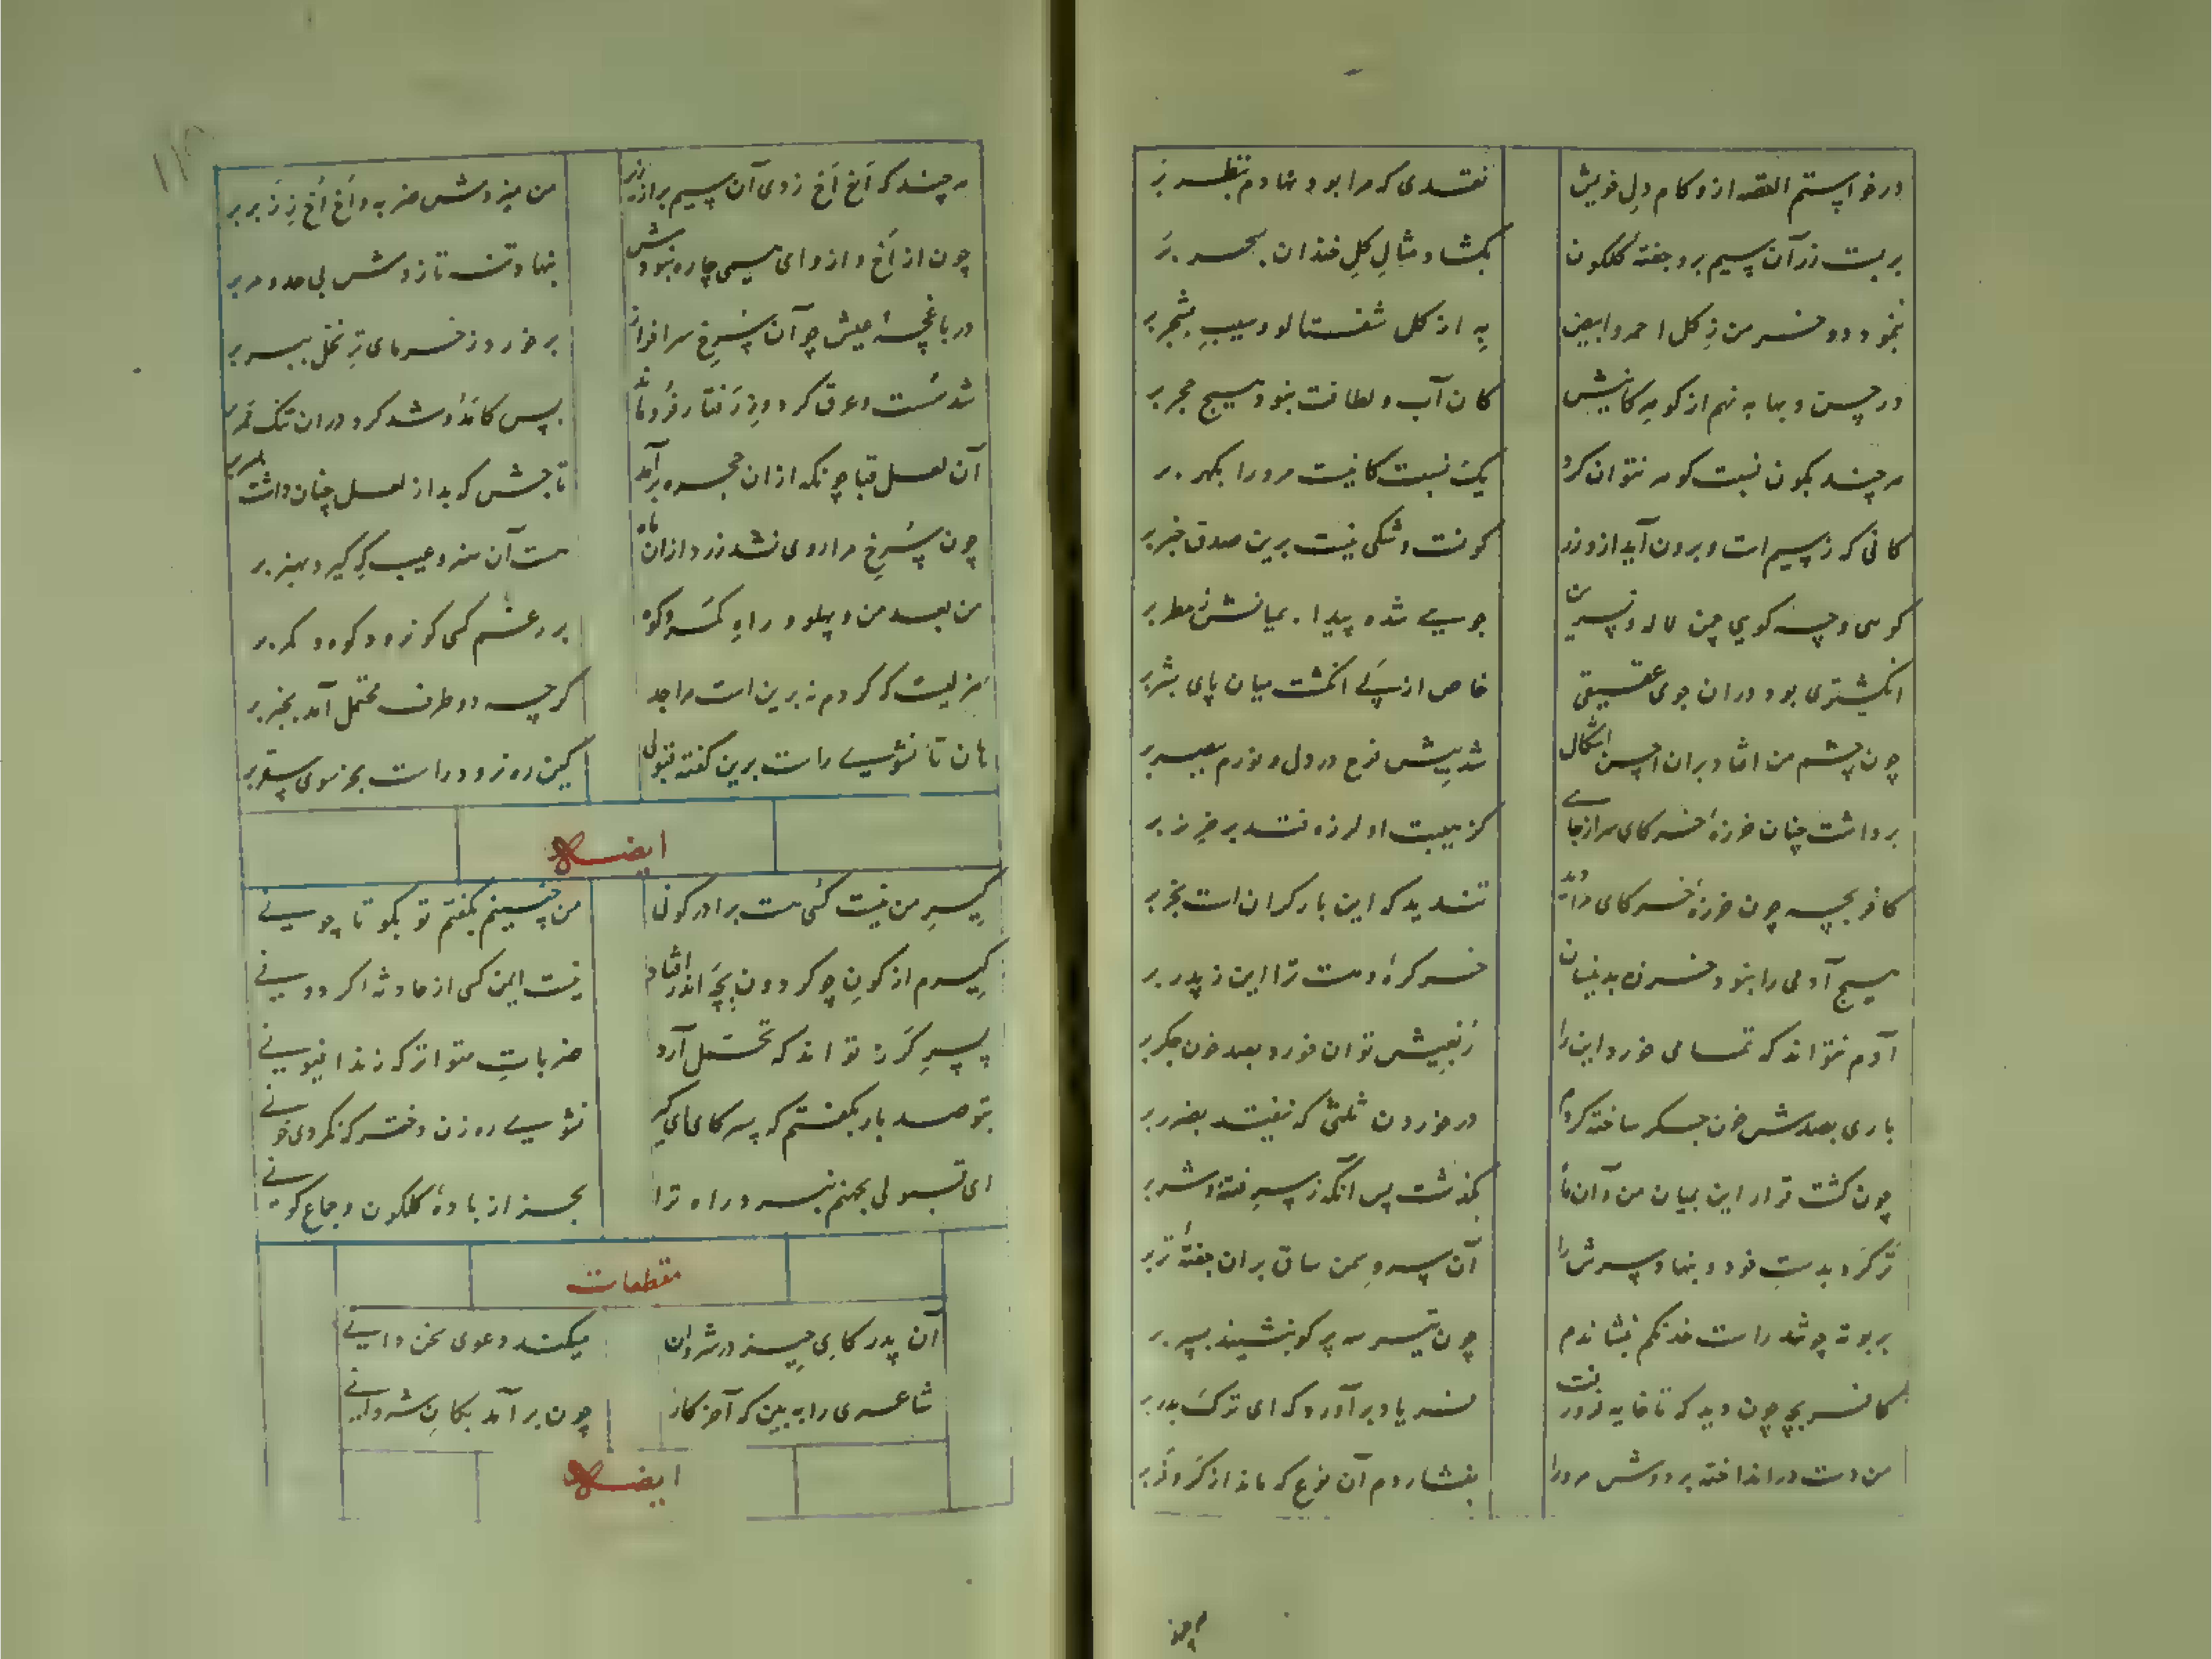 درخواستم القصه ازو کام دل خویش
نقدی که مرا بود نهادم بنظر بر
بربست زر آن سیم بر و جفتهٔ گلگون
بگشاد مثالِ گلِ خندان بسحر بر
بنمود دو خرمن زِ گل احمر و ابیض
بِه از گل شفتالو و سیب بشجر بر
در حسن و بها به نهم از کوه کانیش
کان آب و لطافت بنود هیچ حجر بر
هر چند بکون نسبت کوه نتوان کرد
یک نسبت کانیست مرورا بکهر بر
کانی که ز سیم است و برون آید ازو زر
کونست و شکی نیست برین صدق خبر بر
کوهی و چه کوهی چمن لاله و نسرین
جویی شده پیدا بمیانش مطر بر
انگشتری بود دران جوی عقیقی
خاص از پی انگشت میان پای بشر بر
چون چشم من افتاد بران احسن اشکال
شد پیش فرح در دل و نورم ببصر بر
برداشت چنان خرزهٔ خر کای سر از جای
کز هیبت او لرزه فتد بر خر نر بر
کافر بچه چون خرزهٔ خر کای
تندید که این بار گران است بخر بر
هیچ آدمی را بنود خرزه بدینسان
خر کره دست ترا این ز پدر بر
آدم نتواند که تمامی خورد این را
ز نیمیش توان خورد بصد خون جگر بر
باری بصدش خون جگر ساخته کردم
در خوردن ثلثی که نیفتد بضرر بر
چون گشت قرار این بمیان من و آن ماه
بگذشت پس آنکه ز سرِ فتنه و شر بر
تر کرد بدستِ خود و بنهاد سرش را
آن سرو سمن ساق بران جفتهٔ تر بر
بربوته چو شد راست خدنکم بنشاندم
چون تیر سه پر کو بنشیند بسپر بر
کافر بچه چون دید که تا خایه فرورفت
فریاد برآورد که ای ترک بدر بر
من دست درانداخته بر دوش مرورا
بفشاردم آن نوع که ماند از کر و فر بر
هر چند که اَخ اَخ زدی آن سیم بر از درد
من میزدمش ضربه و اَخ اَخ زِ زبر بر
چون از اَخ و از وای سیمی چاره نبودش
بنهاد تن تا زدمش بی حد و مر بر
در باغچهٔ عیش چو آن سُرخ سرافراز
برخورد ز خرمای تر نخل ببر بر
شد سُست و عرق کرد و زِ رفتار فرو ماند
پس کاند شد کرد دران تنک ممر بر
آن لعل قبا چونکه ازان حجره برآمد
تا جش که بد از لعل چنان داشت بسر بر
چون سُرخ مرا روی نشد زرد ازان ماه
هست آن هنر و عیب که گیرد بهنر بر
من بعد من و پهلو و راهِ کمر و کوه
بر رغم کسی کو نرود کوه و کمر بر
هزلیست که کردم نه برین است مرا جد
گرچه دو طرف محتمل آمد بخبر بر
هان تا نشوی راست برین گفته قبولی
کین ره نرود راست بجز سوی سقر بر
ایضاً
کیرِ من نیست کسی هست برادر کونی
من چنینم بگفتم تو بگو تا چونی
کیرم از کونِ چو گردون بچه اندر افتاد
نیست ایمن کسی از حادثهٔ گردونی
پسرِ کرد تواند که تحمل آرد
ضرباتِ متواتر که زند افیونی
بتو صد بار بگفتم که پسر کای ای کیر
نشوی ره زن دختر که نگردی خونی
ای قبولی بجهنم نبرد راه ترا
بجز از بادهٔ گلگون و جماع کونی
مقطعات
آن پدر کایِ حیز در شروان
میکند دعوی سخن دانی
شاعری را ببین که آخر کار
چون برآمد بکانِ شروانی
ایضاً